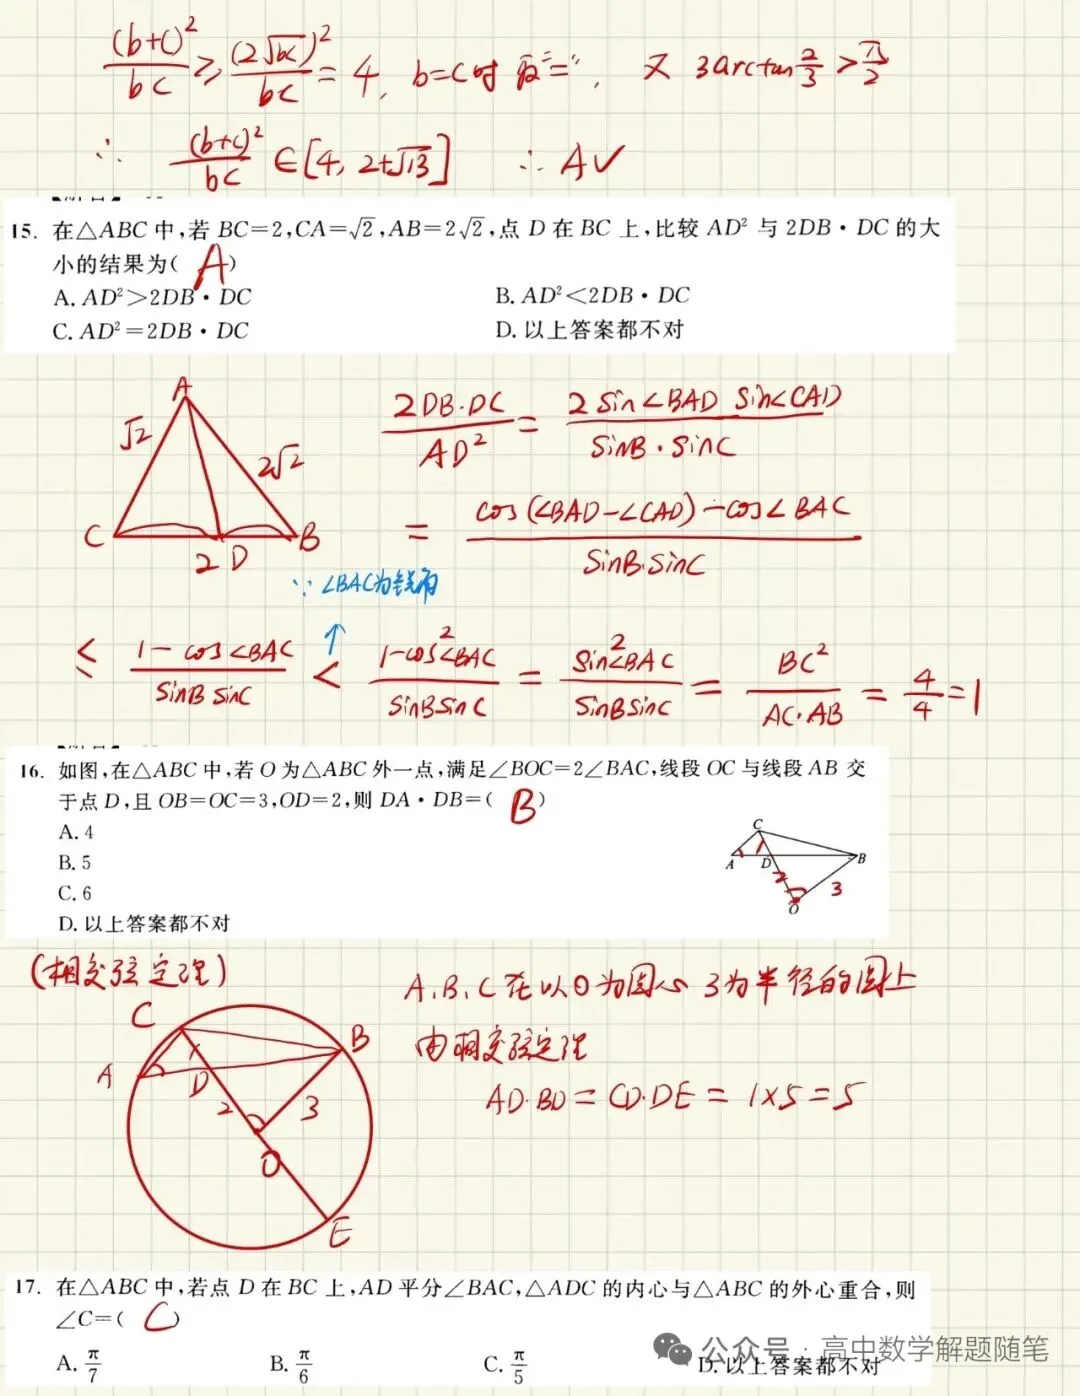 (b+c)²/bc ≥ (2√bc)²/bc = 4, b=c时取"=", 又 3arctan 2/3 > π/2
∴ (b+c)²/bc ∈ [4, 2+√13] ∴ A✓
15. 在△ABC中,若BC=2,CA=√2,AB=2√2,点D在BC上,比较AD²与2DB·DC的大
小的结果为( A )
A. AD²>2DB·DC B. AD²<2DB·DC
C. AD²=2DB·DC D. 以上答案都不对
A
√2
2√2
C
2 D
B
2DB·DC/AD² = 2sin∠BAD sin∠CAD/sinB·sinC
= cos(∠BAD-∠CAD)-cos∠BAC/sinB·sinC
∵∠BAC为锐角
↑
≤ 1-cos∠BAC/sinB sinC < 1-cos²∠BAC/sinBsinC = sin²∠BAC/sinBsinC = BC²/AC·AB = 4/4 = 1
16. 如图,在△ABC中,若O为△ABC外一点,满足∠BOC=2∠BAC,线段OC与线段AB交
于点D,且OB=OC=3,OD=2,则DA·DB=( B )
A. 4
B. 5
C. 6
D. 以上答案都不对
C
A
1
D
B
2
3
O
(相交弦定理)
A、B、C在以O为圆心 3为半径的圆上
由相交弦定理
AD·BD = CD·DE = 1×5 = 5
C
B
A
1
D
2
3
O
E
17. 在△ABC中,若点D在BC上,AD平分∠BAC,△ADC的内心与△ABC的外心重合,则
∠C=( C )
A. π/7 B. π/6 C. π/5 D. 以上答案都不对
公众号 · 高中数学解题随笔